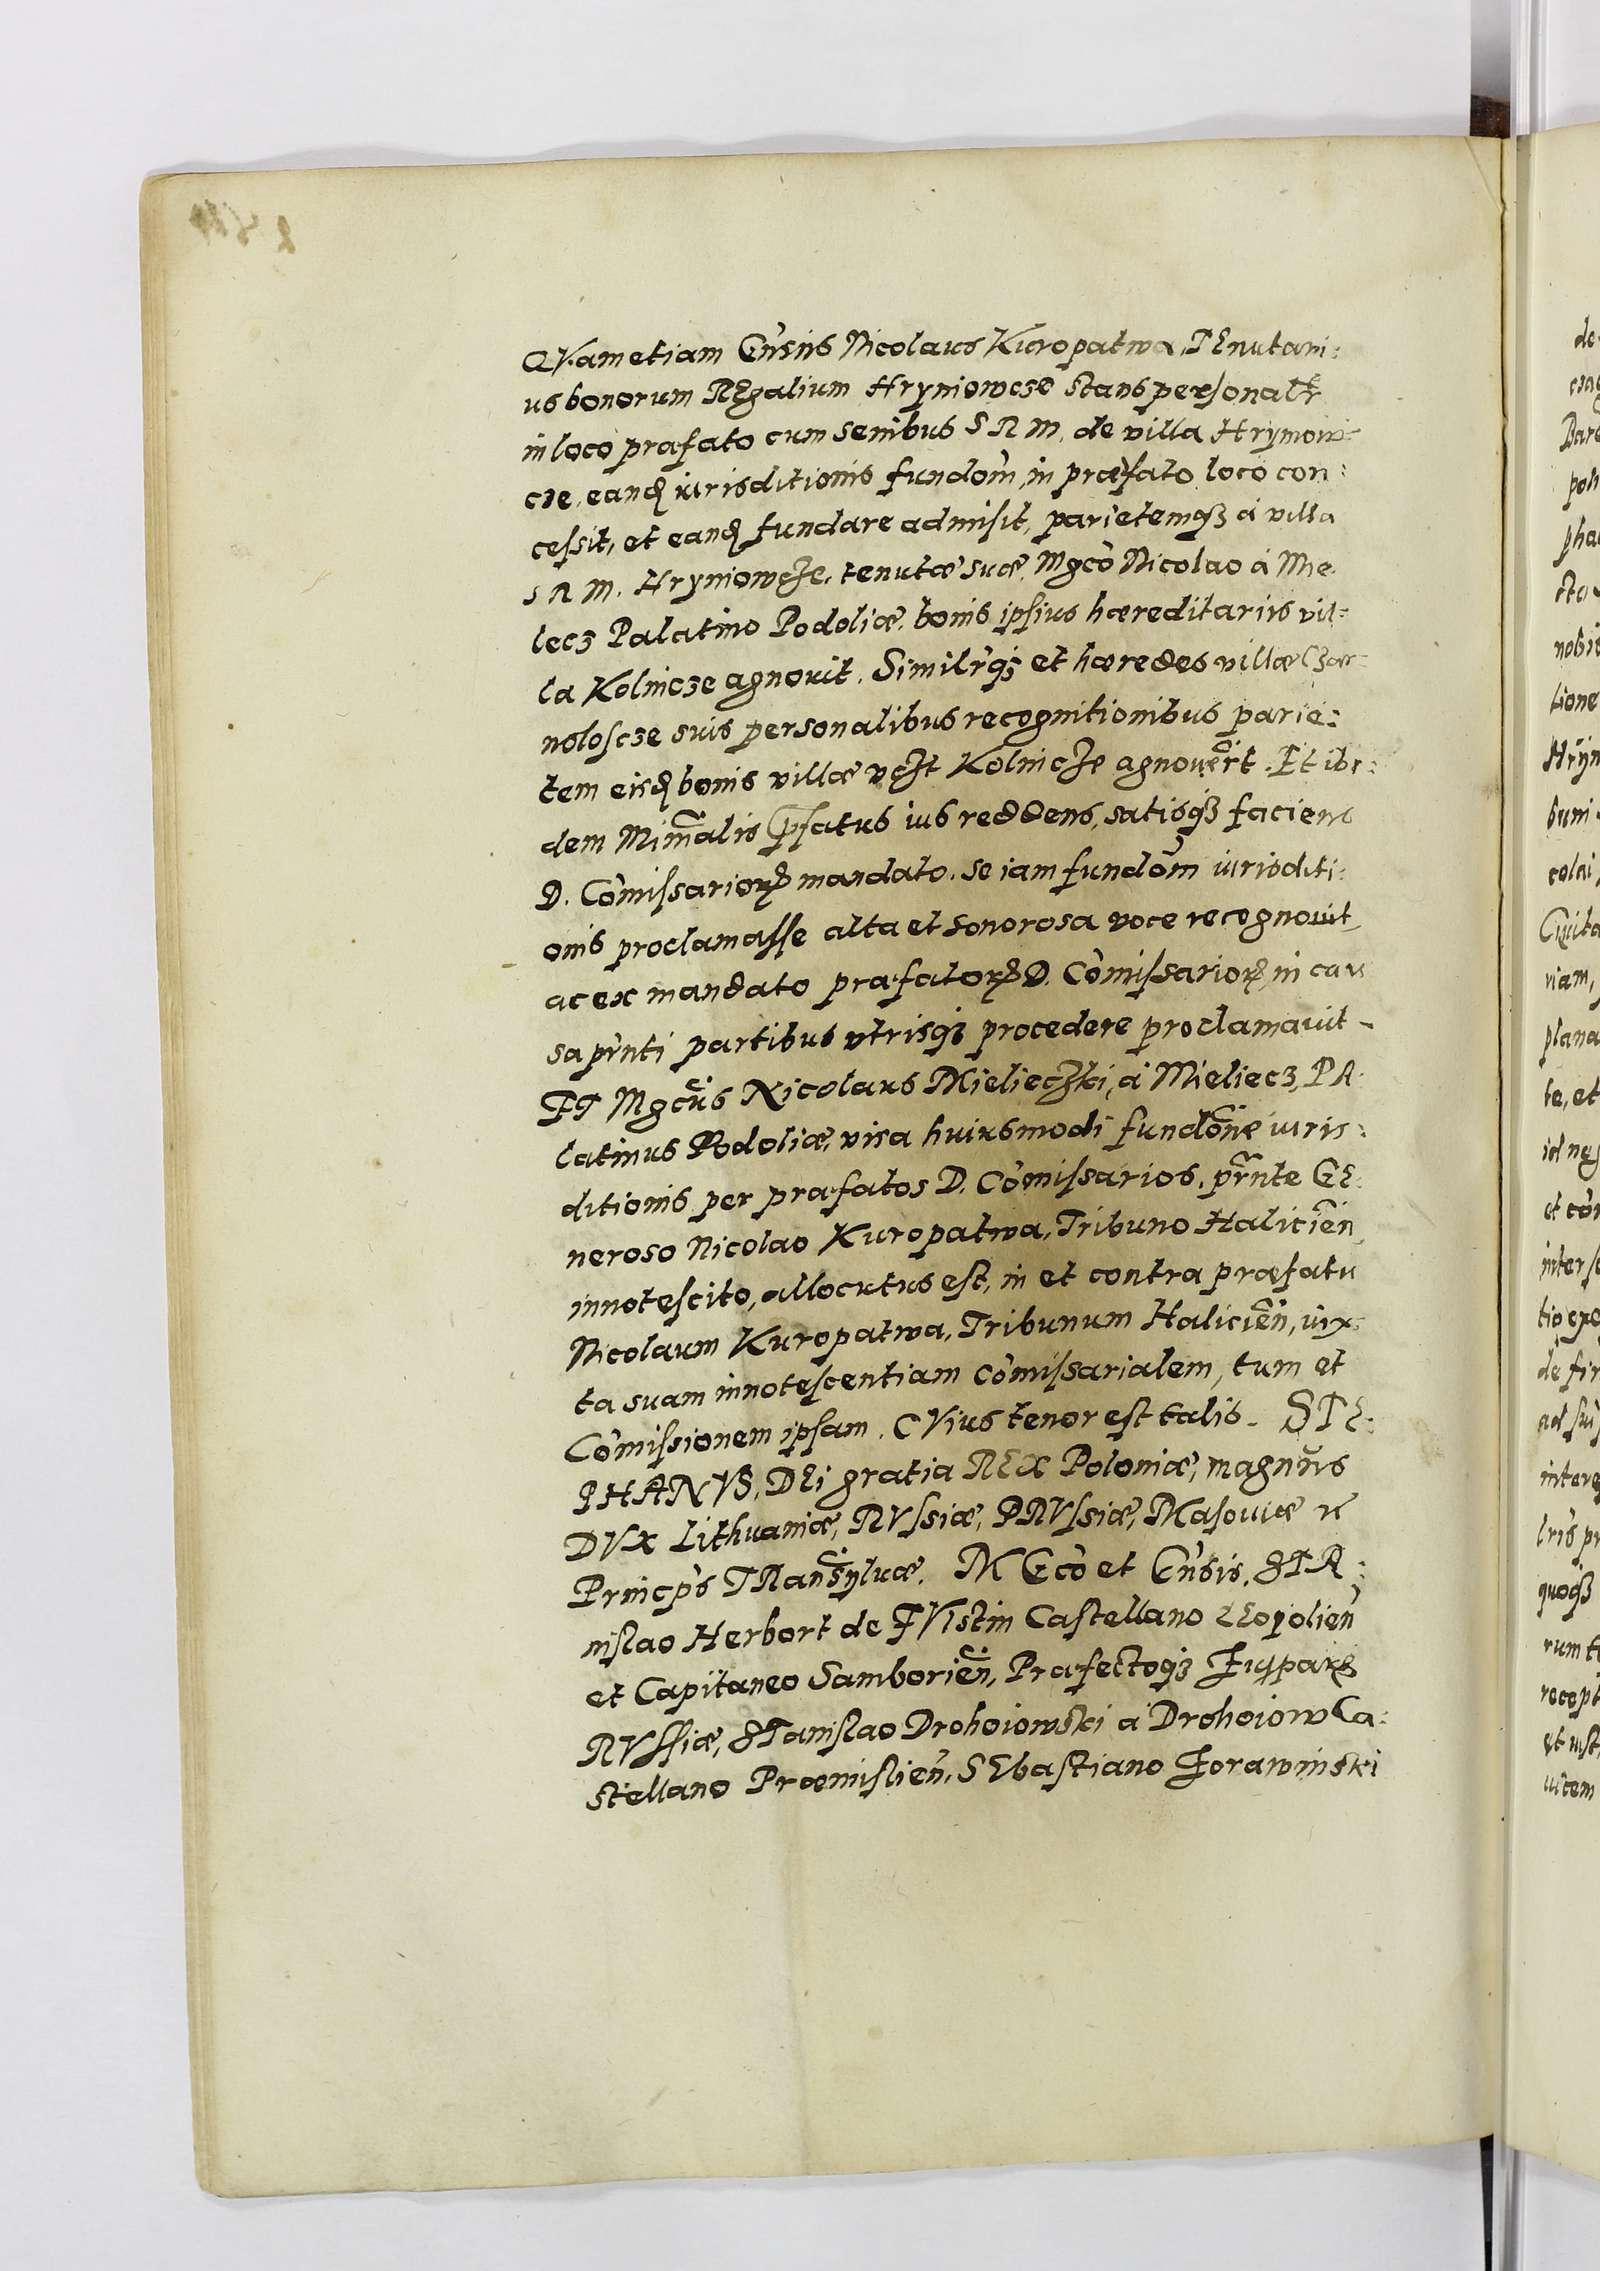 QVam etiam Gn̄sūs Nicolaus Kuropatwa, TEnutari:
us bonorum REgalium Hryniowcze stans personalr̄
in loco præfato cum senibus S R M. de villa Hryniow=
cze, eand̨ iurisditionis fundom̄, in præfato loco con:
cessit, et eand̨ fundare admisit, parietemq3 á villa
S R M. Hryniowcze, tenutæ suæ, Mgco Nicolao á Mie
lecz Palatino Podoliæ, bonis ipsius hæreditariis vil=
la Kolnicze agnouit. Similr̄q3 et hæredes villæ Czar=
noloscze suis personalibus recognitionibus parie:
tem eisd̨ bonis villæ vczt Kolnicze agnouer̄t. Et ibi:
dem Min̄alis p̄fatus ius reddens, satisq3 faciens
D. Com̄issarioꝝ mandato, se iam fundom̄ iurisditi:
onis proclamasse alta et sonorosa voce recognouit
ac ex mandato præfatoꝝ D. Com̄issarioꝝ, in cau
sa pn̄ti partibus vtrisq3 procedere proclamauit –
ET Mgcūs Nicolaus Mielieczki, á Mieliecz, PA:
latinus Podoliæ, visa huiusmodi fundon̄e iuris:
ditionis per præfatos D. Com̄issarios, pr̄nte GE:
neroso Nicolao Kuropatwa, Tribuno Halicien̄,
innotescito, allocutus est, in et contra præfatu
Nicolaum Kuropatwa, Tribunum Halicien̄, iux:
ta suam innotescentiam Com̄issarialem, tum et
Com̄issionem ipsam. CVius tenor est talis. STE:
PHANVS, DEi gratia REX Poloniæ, magnus
DVx Lithuaniæ, RVssiæ, PRVssiæ, Masouiæ
Princp̄s TRansyluæ. MGco et Gn̄sis, STA:
nislao Herbort de FVlstin Castellano LEopolien̄
et Capitaneo Samborien̄, Præfectoq3 Zupparꝝ
RVssiæ, STanislao Drohoiowski á Drohoiow Ca:
stellano Præmislien̄, SEbastiano Zorawinski